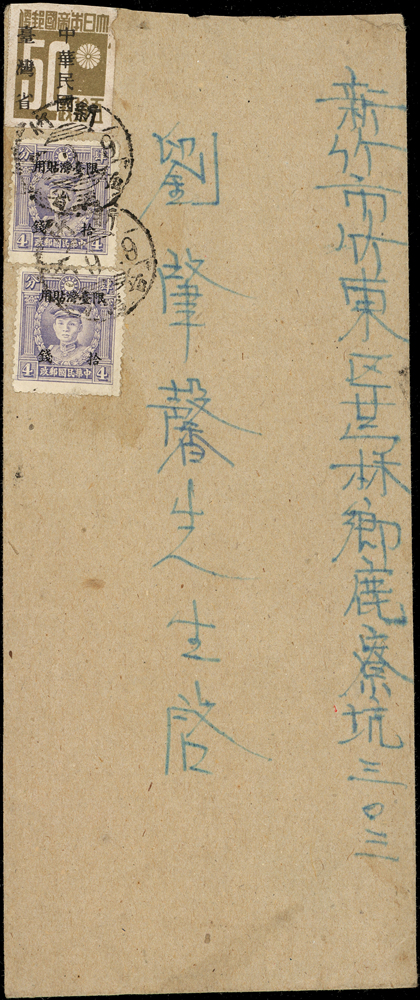 新竹市竹東区芎林鄉鹿寮坑三〇三
劉肇馨先生啓
大日本帝國郵便
50
中華民國
臺灣省
分
限臺灣貼用
拾錢
4 中華民國郵政 4
分
限臺灣貼用
拾錢
4 中華民國郵政 4